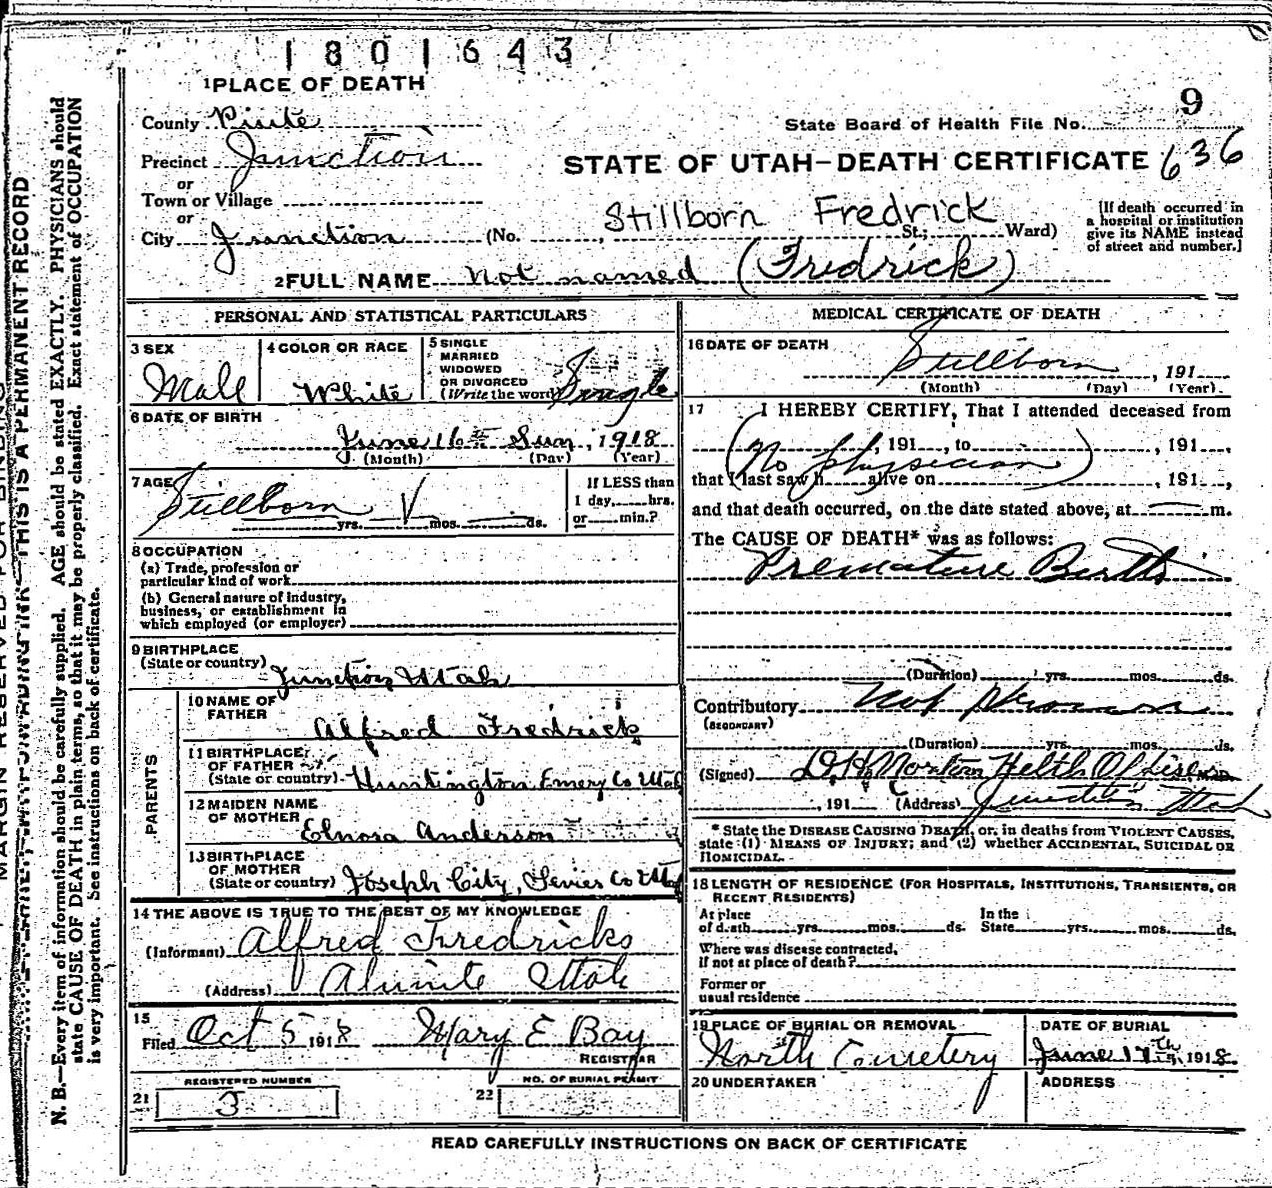 1801643
1 PLACE OF DEATH
9
County Piute
State Board of Health File No.
Precinct Junction
STATE OF UTAH—DEATH CERTIFICATE 636
or
Town or Village
or
Stillborn Fredrick
City Junction (No. St.; Ward)
[If death occurred in a hospital or institution give its NAME instead of street and number.]
2 FULL NAME Not named (Fredrick)
PERSONAL AND STATISTICAL PARTICULARS
3 SEX Male
4 COLOR OR RACE White
5 SINGLE MARRIED WIDOWED OR DIVORCED (Write the word) Single
6 DATE OF BIRTH
June 16th Sun, 1918
(Month) (Day) (Year)
7 AGE Stillborn
yrs. mos. ds.
If LESS than
1 day, hrs.
or min.?
8 OCCUPATION
(a) Trade, profession or
particular kind of work
(b) General nature of industry,
business, or establishment in
which employed (or employer)
9 BIRTHPLACE
(State or country) Junction Utah
PARENTS
10 NAME OF FATHER Alfred Fredrick
11 BIRTHPLACE OF FATHER
(State or country) Huntington Emery Co Utah
12 MAIDEN NAME OF MOTHER Elnora Anderson
13 BIRTHPLACE OF MOTHER
(State or country) Joseph City, Sevier Co Utah
14 THE ABOVE IS TRUE TO THE BEST OF MY KNOWLEDGE
(Informant) Alfred Fredricks
(Address) Alunite Utah
15
Filed Oct 5 1918 Mary E Bay
REGISTRAR
REGISTERED NUMBER
NO. OF BURIAL PERMIT
21 3
22
MEDICAL CERTIFICATE OF DEATH
16 DATE OF DEATH
Stillborn, 191
(Month) (Day) (Year)
17 I HEREBY CERTIFY, That I attended deceased from
, 191 , to , 191 ,
(No physician)
that I last saw h alive on , 191 ,
and that death occurred, on the date stated above, at m.
The CAUSE OF DEATH* was as follows:
Premature Birth
(Duration) yrs. mos. ds.
Contributory Not
(SECONDARY)
(Duration) yrs. mos. ds.
(Signed) D. H. Morton Helth Officer M.D.
, 191 (Address) Junction Utah
* State the DISEASE CAUSING DEATH, or, in deaths from VIOLENT CAUSES,
state (1) MEANS OF INJURY; and (2) whether ACCIDENTAL, SUICIDAL OR
HOMICIDAL.
18 LENGTH OF RESIDENCE (FOR HOSPITALS, INSTITUTIONS, TRANSIENTS, OR
RECENT RESIDENTS)
At place of death yrs. mos. ds. In the State yrs. mos. ds.
Where was disease contracted,
If not at place of death?
Former or
usual residence
19 PLACE OF BURIAL OR REMOVAL
North Cemetery
DATE OF BURIAL
June 17th, 1918
20 UNDERTAKER
ADDRESS
READ CAREFULLY INSTRUCTIONS ON BACK OF CERTIFICATE
MARGIN RESERVED FOR BINDING
THIS IS A PERMANENT RECORD
N. B.—Every item of information should be carefully supplied. AGE should be stated EXACTLY. PHYSICIANS should
state CAUSE OF DEATH in plain terms, so that it may be properly classified. Exact statement of OCCUPATION
is very important. See instructions on back of certificate.